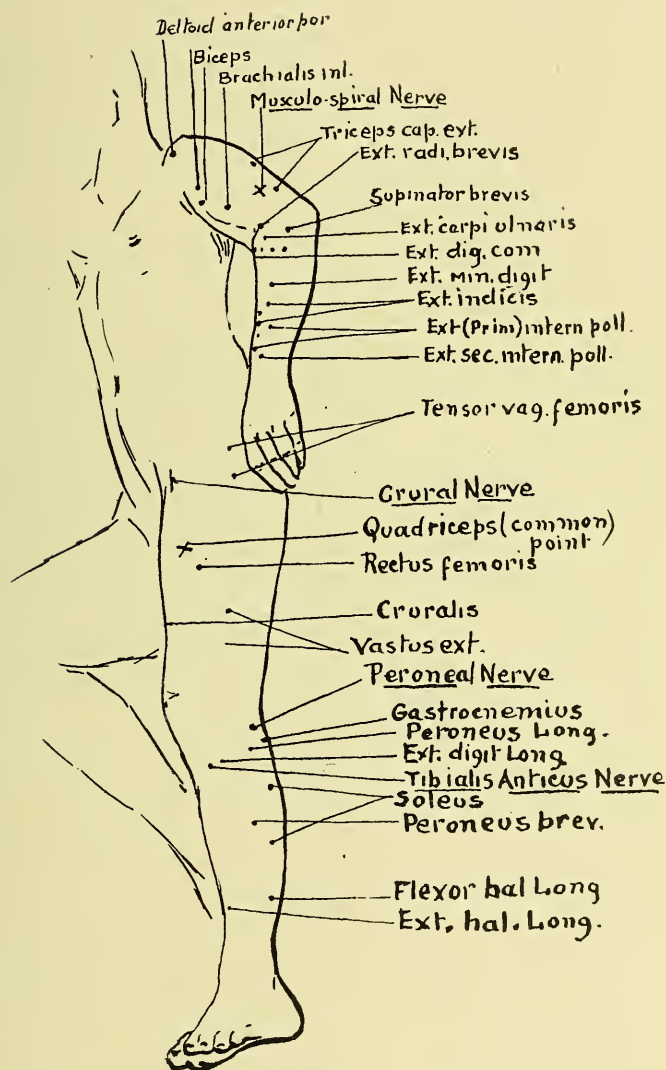 Deltoid anterior por
Biceps
Brachialis inl.
Musculo-spiral Nerve
Triceps cap. ext.
Ext. radi. brevis
Supinator brevis
Ext. carpi ulnaris
Ext. dig. com
Ext. Min. digit
Ext. indicis
Ext (Prim) intern poll.
Ext. sec. intern. poll.
Tensor vag. femoris
Crural Nerve
Quadriceps (common)
point
Rectus femoris
Cruralis
Vastus ext.
Peroneal Nerve
Gastrocnemius
Peroneus Long.
Ext. digit Long
Tibialis Anticus Nerve
Soleus
Peroneus brev.
Flexor hal Long
Ext. hal. Long.